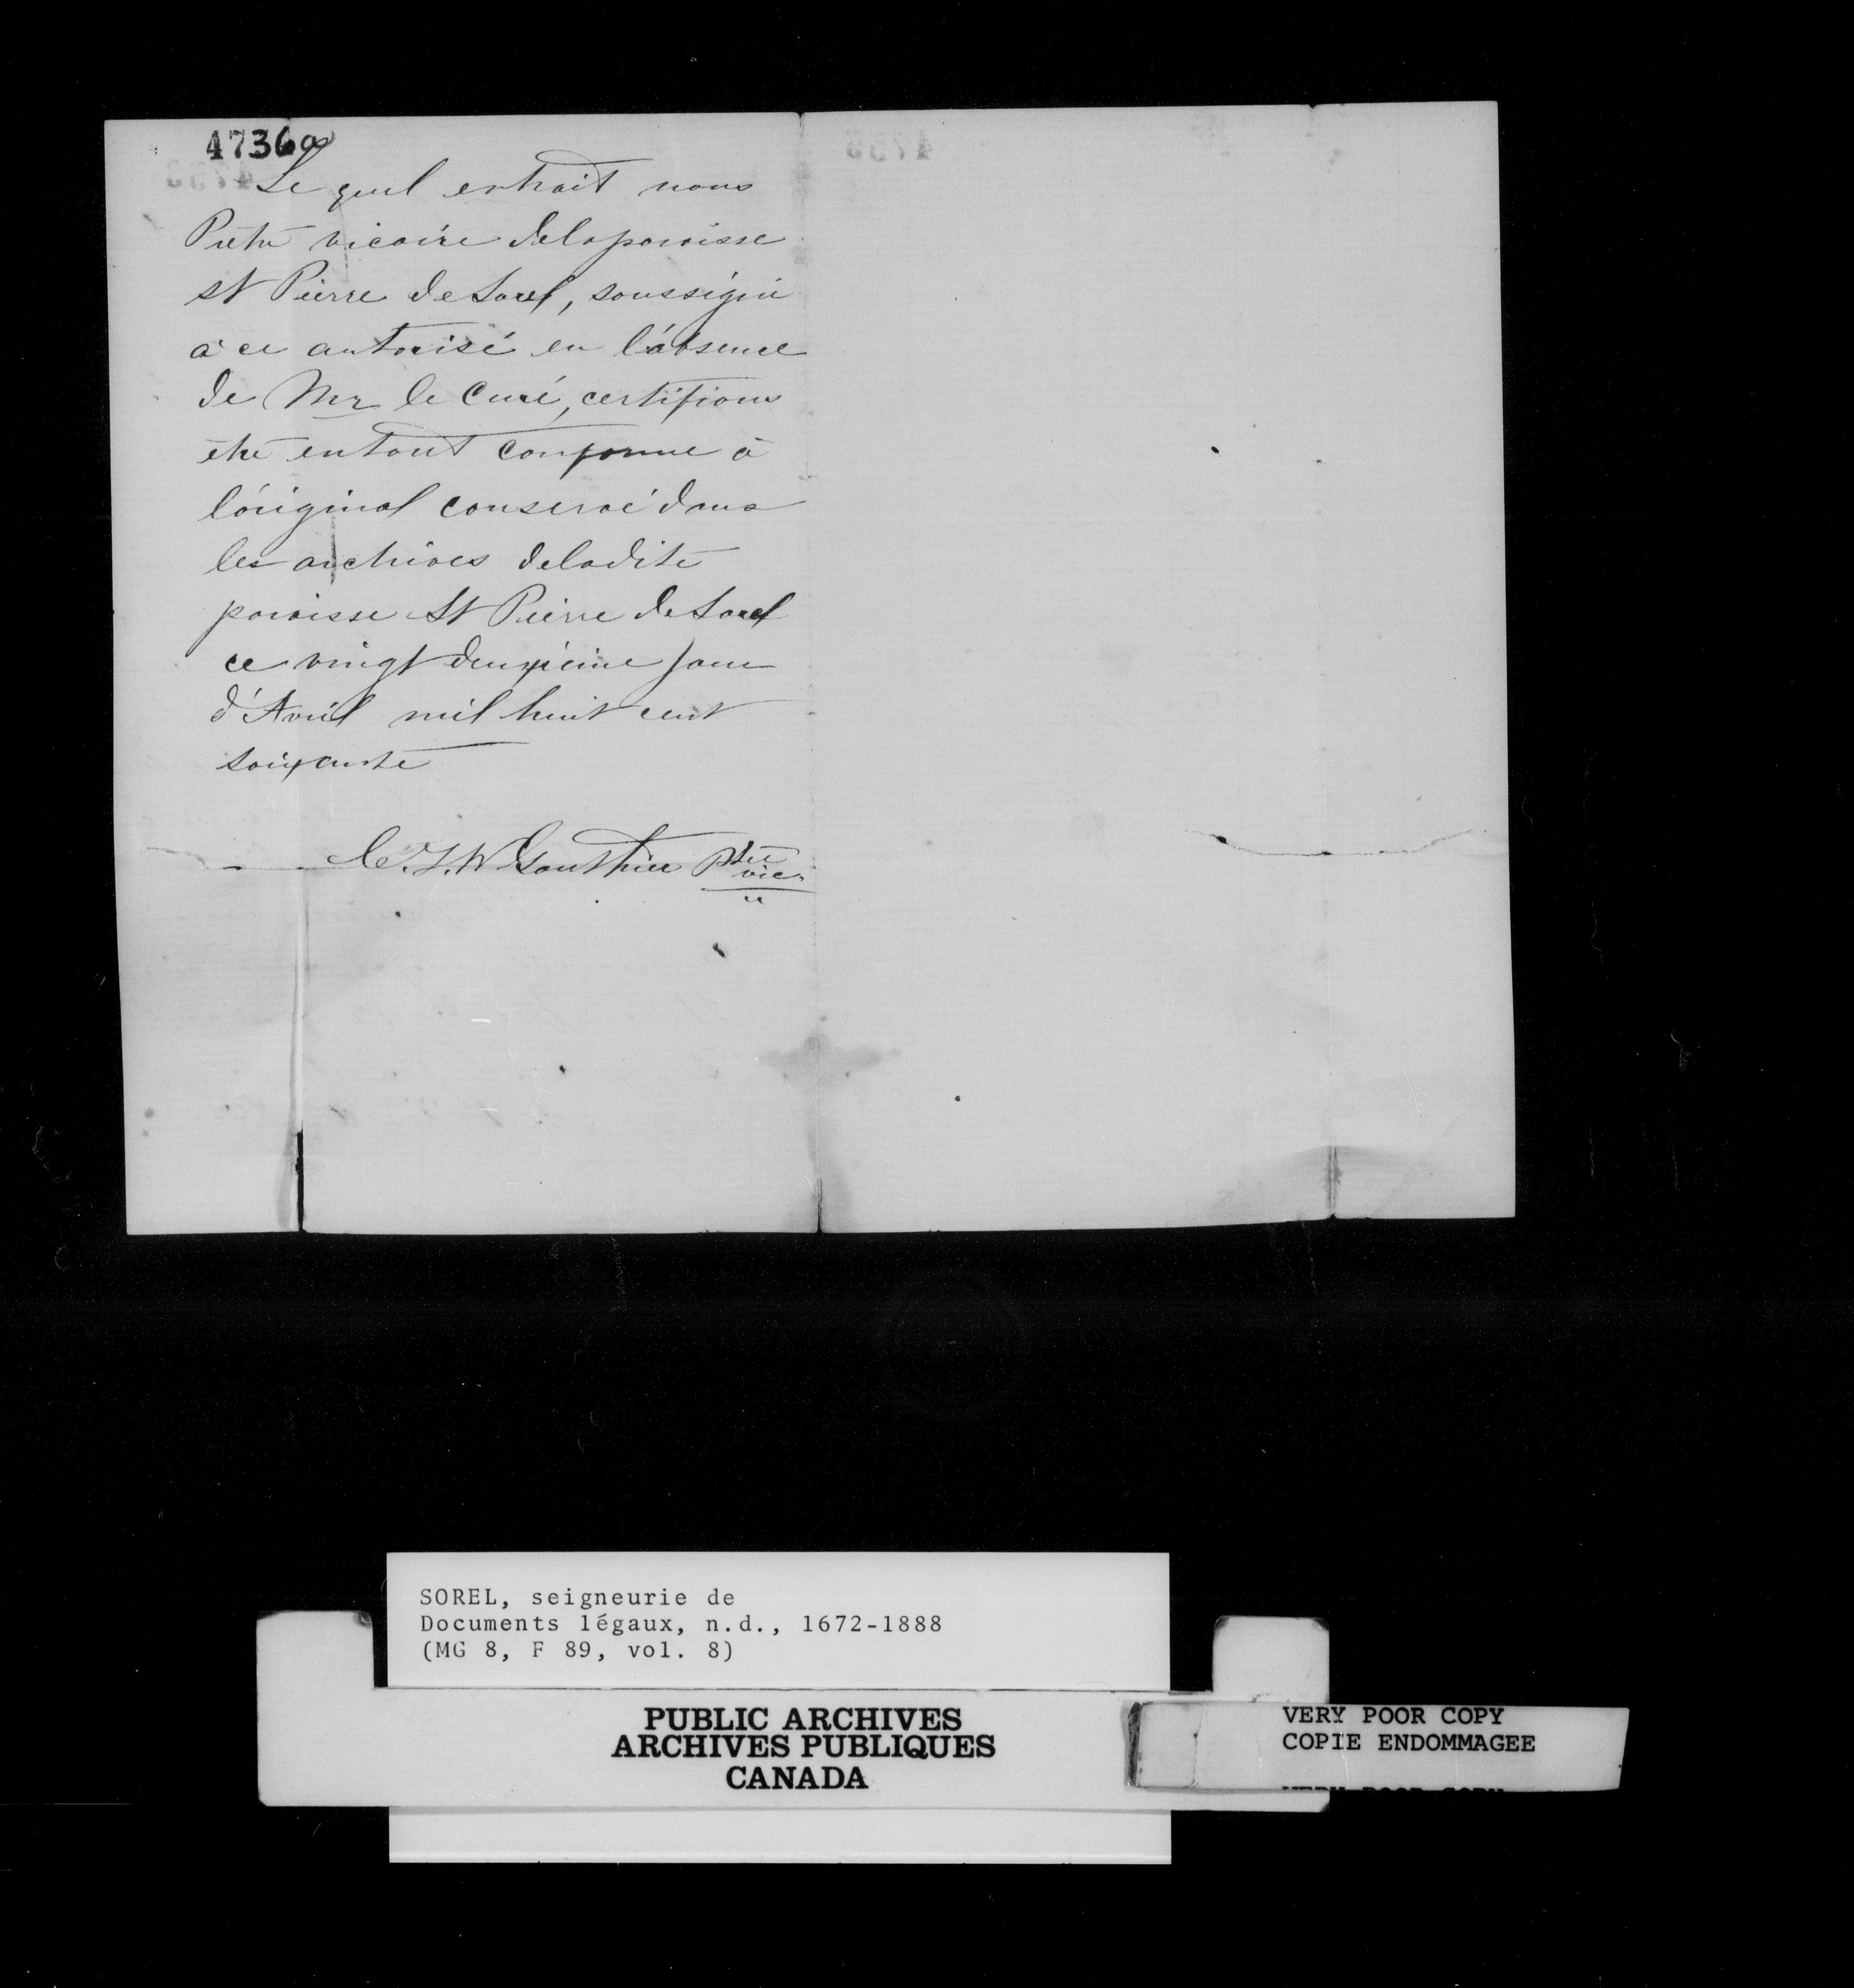 4736a
Le quel extrait nous
Prêtre vicaire de la paroisse
St Pierre de Sorel, soussigné
à ce autorisé en l'absence
de Mr le Curé, certifions
être en tout conforme à
l'original conservé dans
les archives de la dite
paroisse St Pierre de Sorel
ce vingt deuxième jour
d'Avril mil huit cent
soixante
C. J. W Gauthier Ptre
vic.
SOREL, seigneurie de
Documents légaux, n.d., 1672-1888
(MG 8, F 89, vol. 8)
PUBLIC ARCHIVES
ARCHIVES PUBLIQUES
CANADA
VERY POOR COPY
COPIE ENDOMMAGEE
VERY POOR COPY